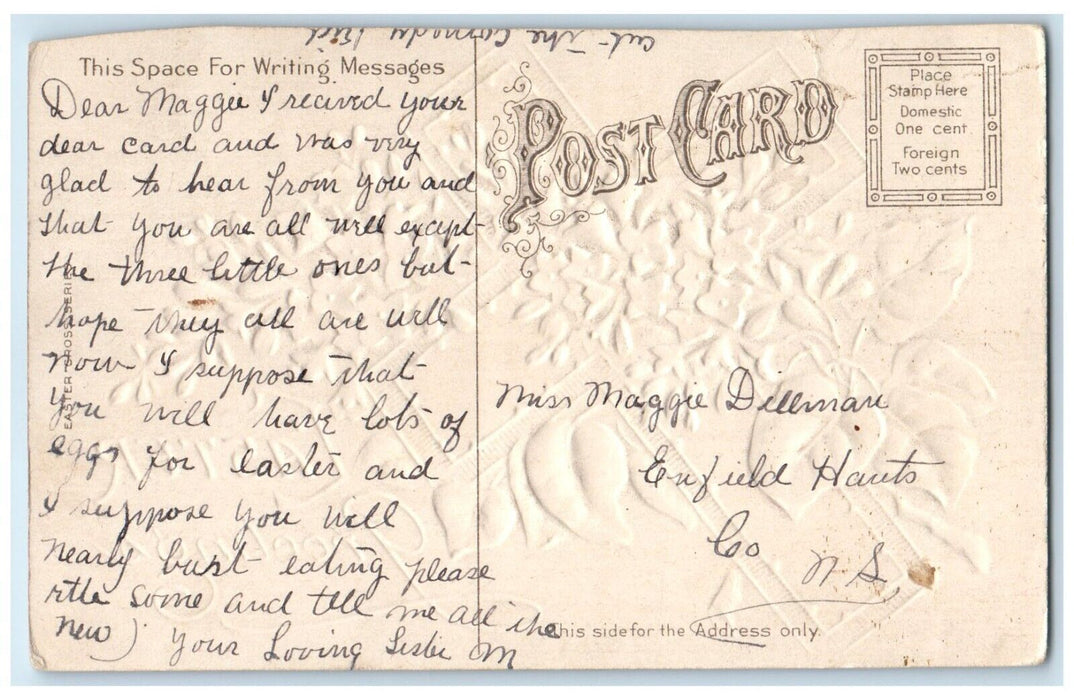 This Space For Writing Messages
Dear Maggie I recived your
dear card and was very
glad to hear from you and
that you are all well except
the three little ones but
hope they all are will
now I suppose that
you will have lots of
eggs for easter and
I suppose you will
nearly bust eating please
some and tell me all the
new
your Loving Sister M
cut the
POST CARD
Place
Stamp Here
Domestic
One cent
Foreign
Two cents
Miss Maggie Dillman
Enfield Hants
Co N S
This side for the Address only.
EASTER CROSS SERIES